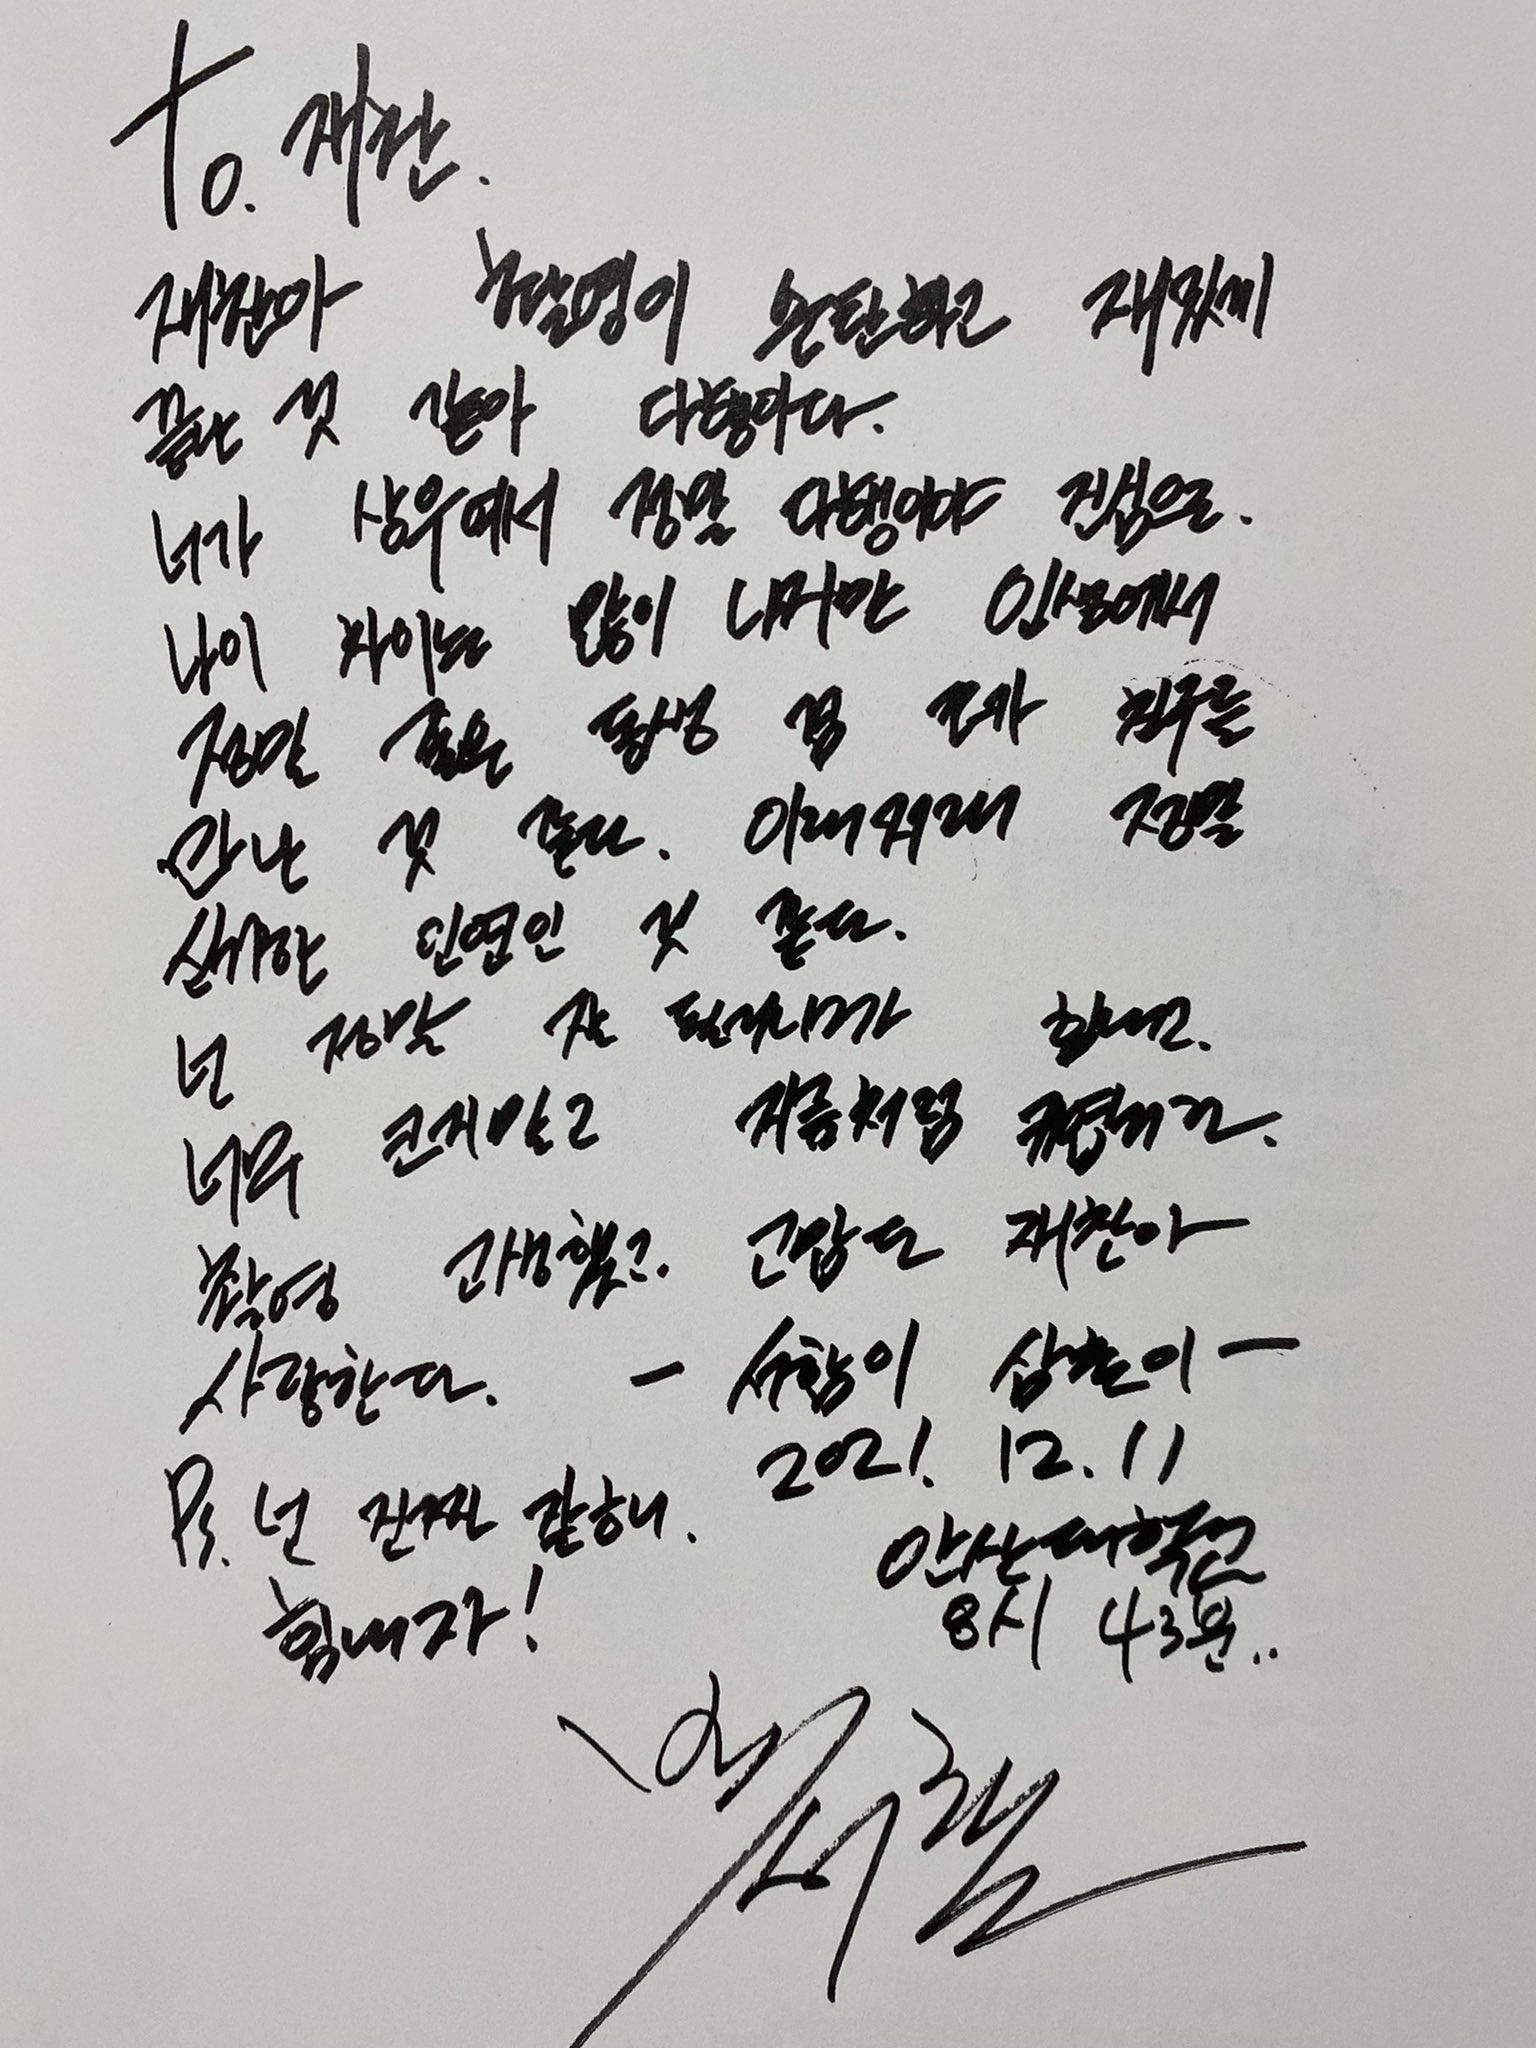 To. 재찬.
재찬아 촬영이 순탄하고 재밌게
끝난 것 같아 다행이다.
너가 상우여서 정말 다행이야 진심으로.
나이 차이는 많이 나지만 인생에서
정말 좋은 동생 겸 친구를
만난 것 같다. 이래저래 정말
신기한 인연인 것 같다.
넌 정말 잘 될거니까 힘내고.
너무 크지말고 지금처럼 귀엽거라.
촬영 고생했고. 고맙다 재찬아
사랑한다. - 서함이 삼촌이 -
2021. 12. 11
Ps. 넌 진짜 잘해.
안산대학교
힘내자!
8시 43분..
박서함